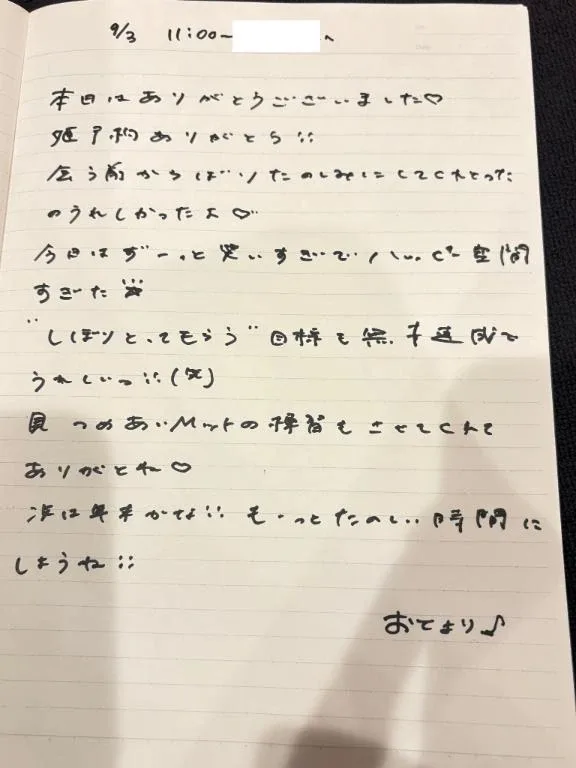 9/3 11:00〜 へ
本日はありがとうございました♡
姫予約ありがとう!!
会う前からばりたのしみにしてくれとった
のうれしかったよ♡
今日はずーっと笑いすぎて 空間
すぎた
"しぼりとってもらう"目標も無事達成で
うれしいっ!!(笑)
見つめあいMットの練習もさせてくれて
ありがとね♡
次は年末かな!! もーっとたのしい時間に
しようね!!
より♪